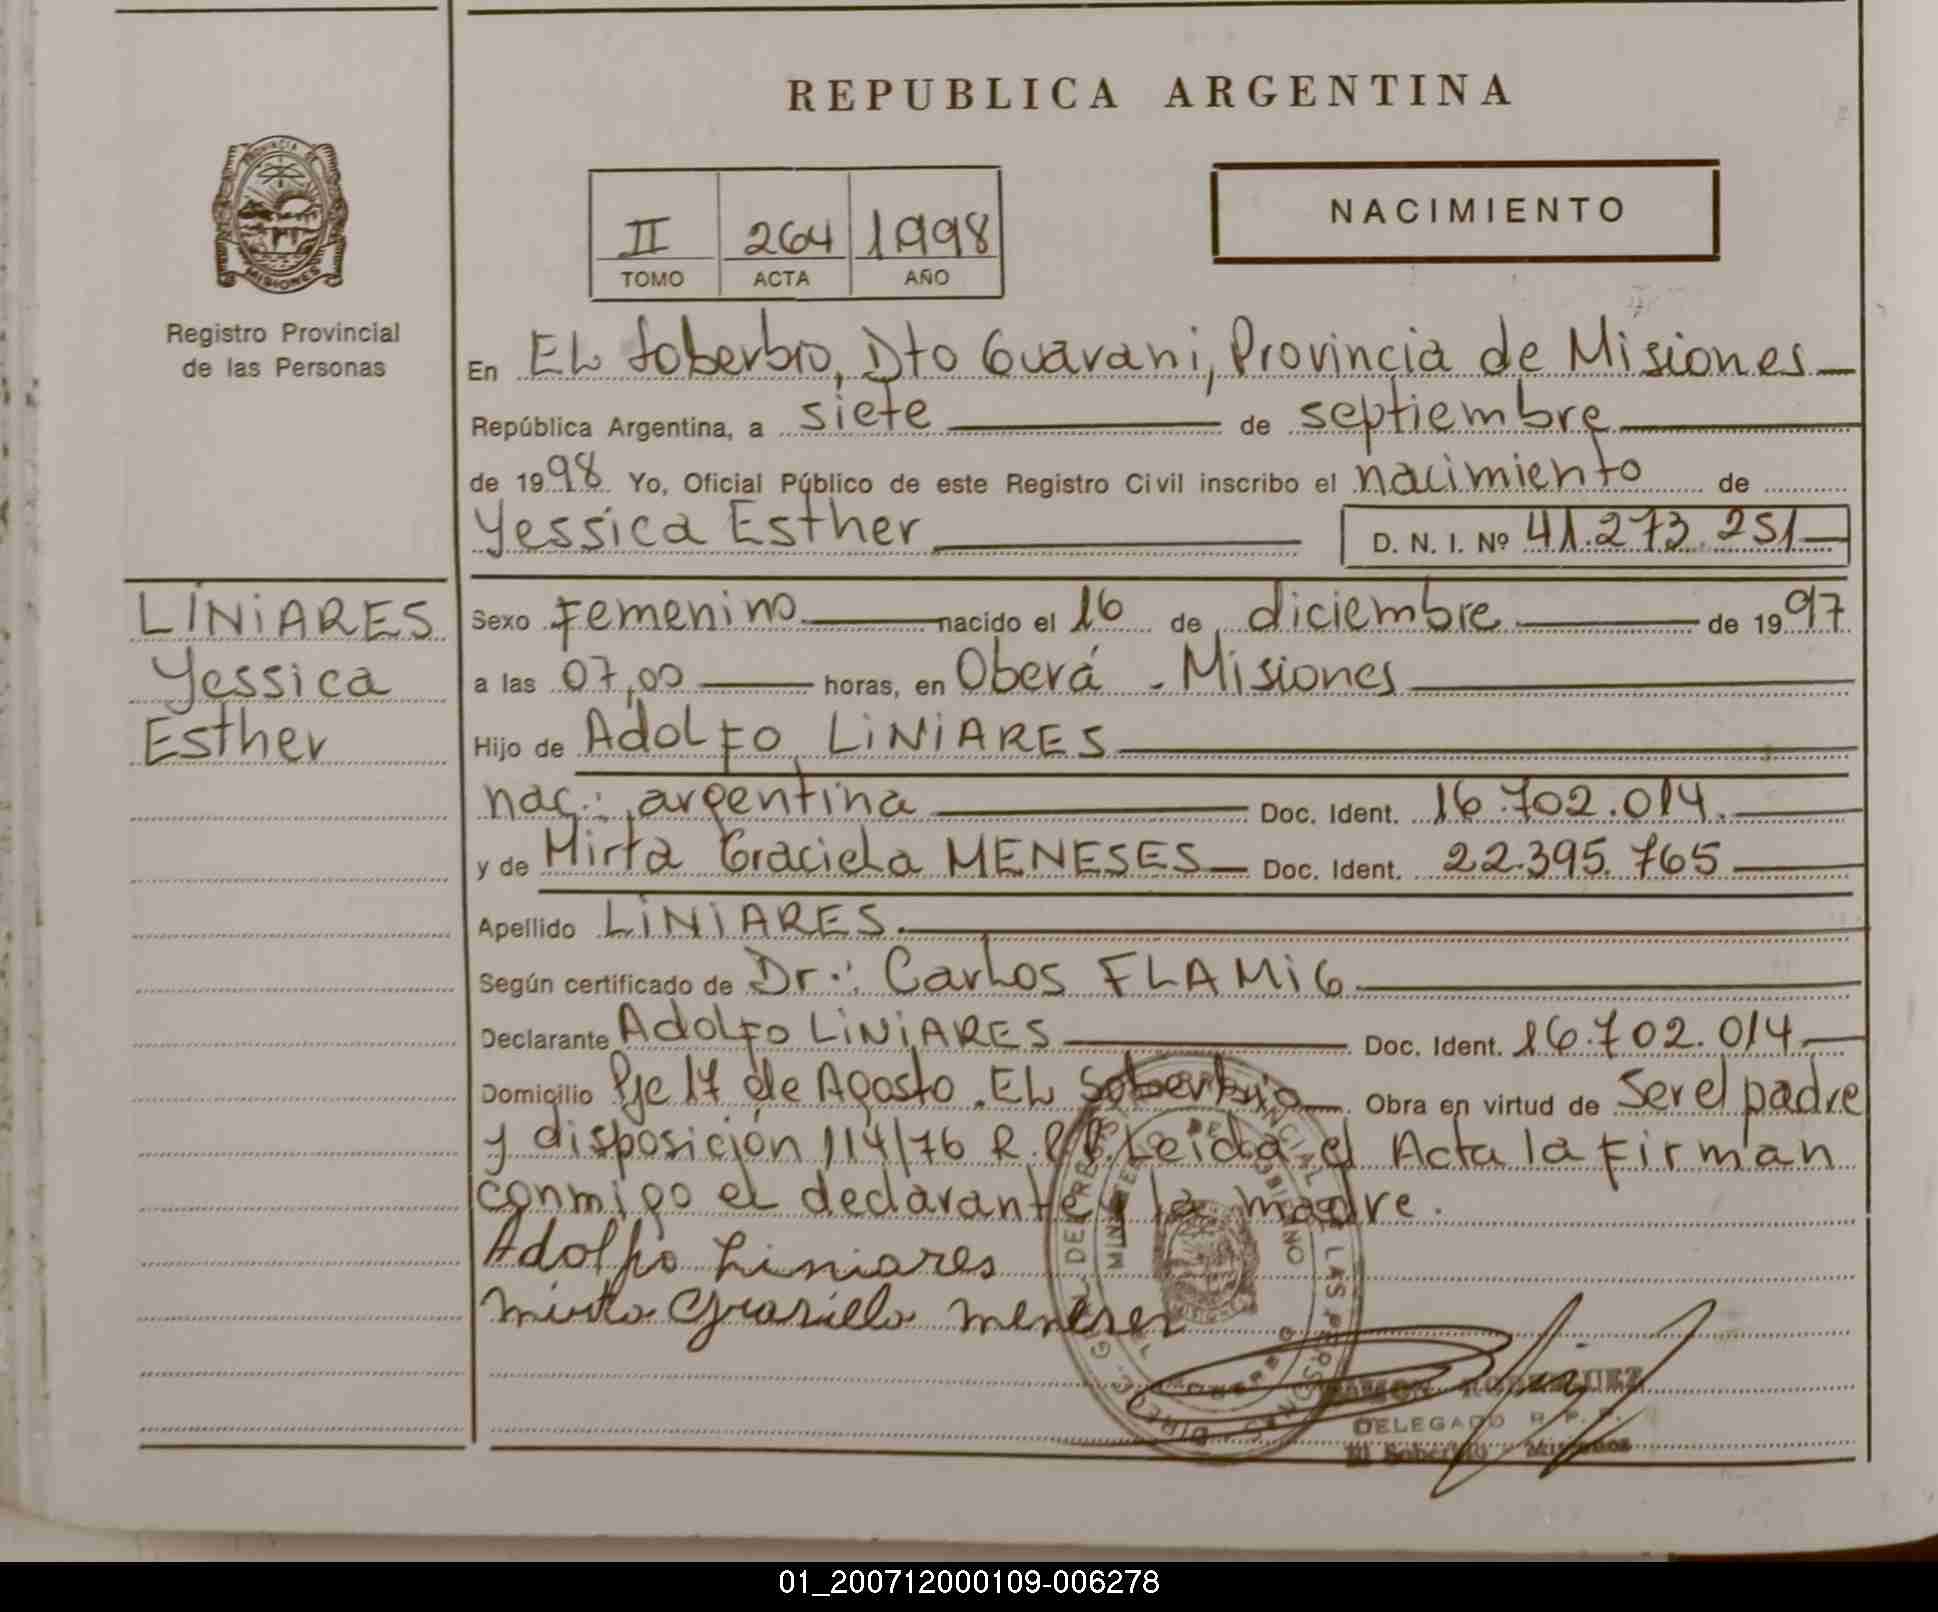 REPUBLICA ARGENTINA
PROVINCIA DE
MISIONES
Registro Provincial
de las Personas
II 264 1998
TOMO ACTA AÑO
NACIMIENTO
En EL Soberbio, Dto Guarani, Provincia de Misiones
República Argentina, a siete de septiembre
de 1998 Yo, Oficial Público de este Registro Civil inscribo el nacimiento de
Yessica Esther D. N. I. Nº 41.273.251
LINIARES
Yessica
Esther
Sexo Femenino nacido el 16 de diciembre de 1997
a las 07,00 horas, en Oberá - Misiones
Hijo de Adolfo LINIARES
nac: argentina Doc. Ident. 16.702.014.
y de Mirta Graciela MENESES Doc. Ident. 22.395.765
Apellido LINIARES.
Según certificado de Dr.: Carlos FLAMIG
Declarante Adolfo LINIARES Doc. Ident. 16.702.014
Domicilio Pje 17 de Agosto. EL Soberbio Obra en virtud de Ser el padre
y disposición 114/76 R.P.P. Leida el Acta la firman
conmigo el declarante y la madre.
Adolfo Liniares
Mirta Grasiella Meneses
RAMON RODRIGUEZ
DELEGADO R. P. P.
El Soberbio - Misiones
01_200712000109-006278